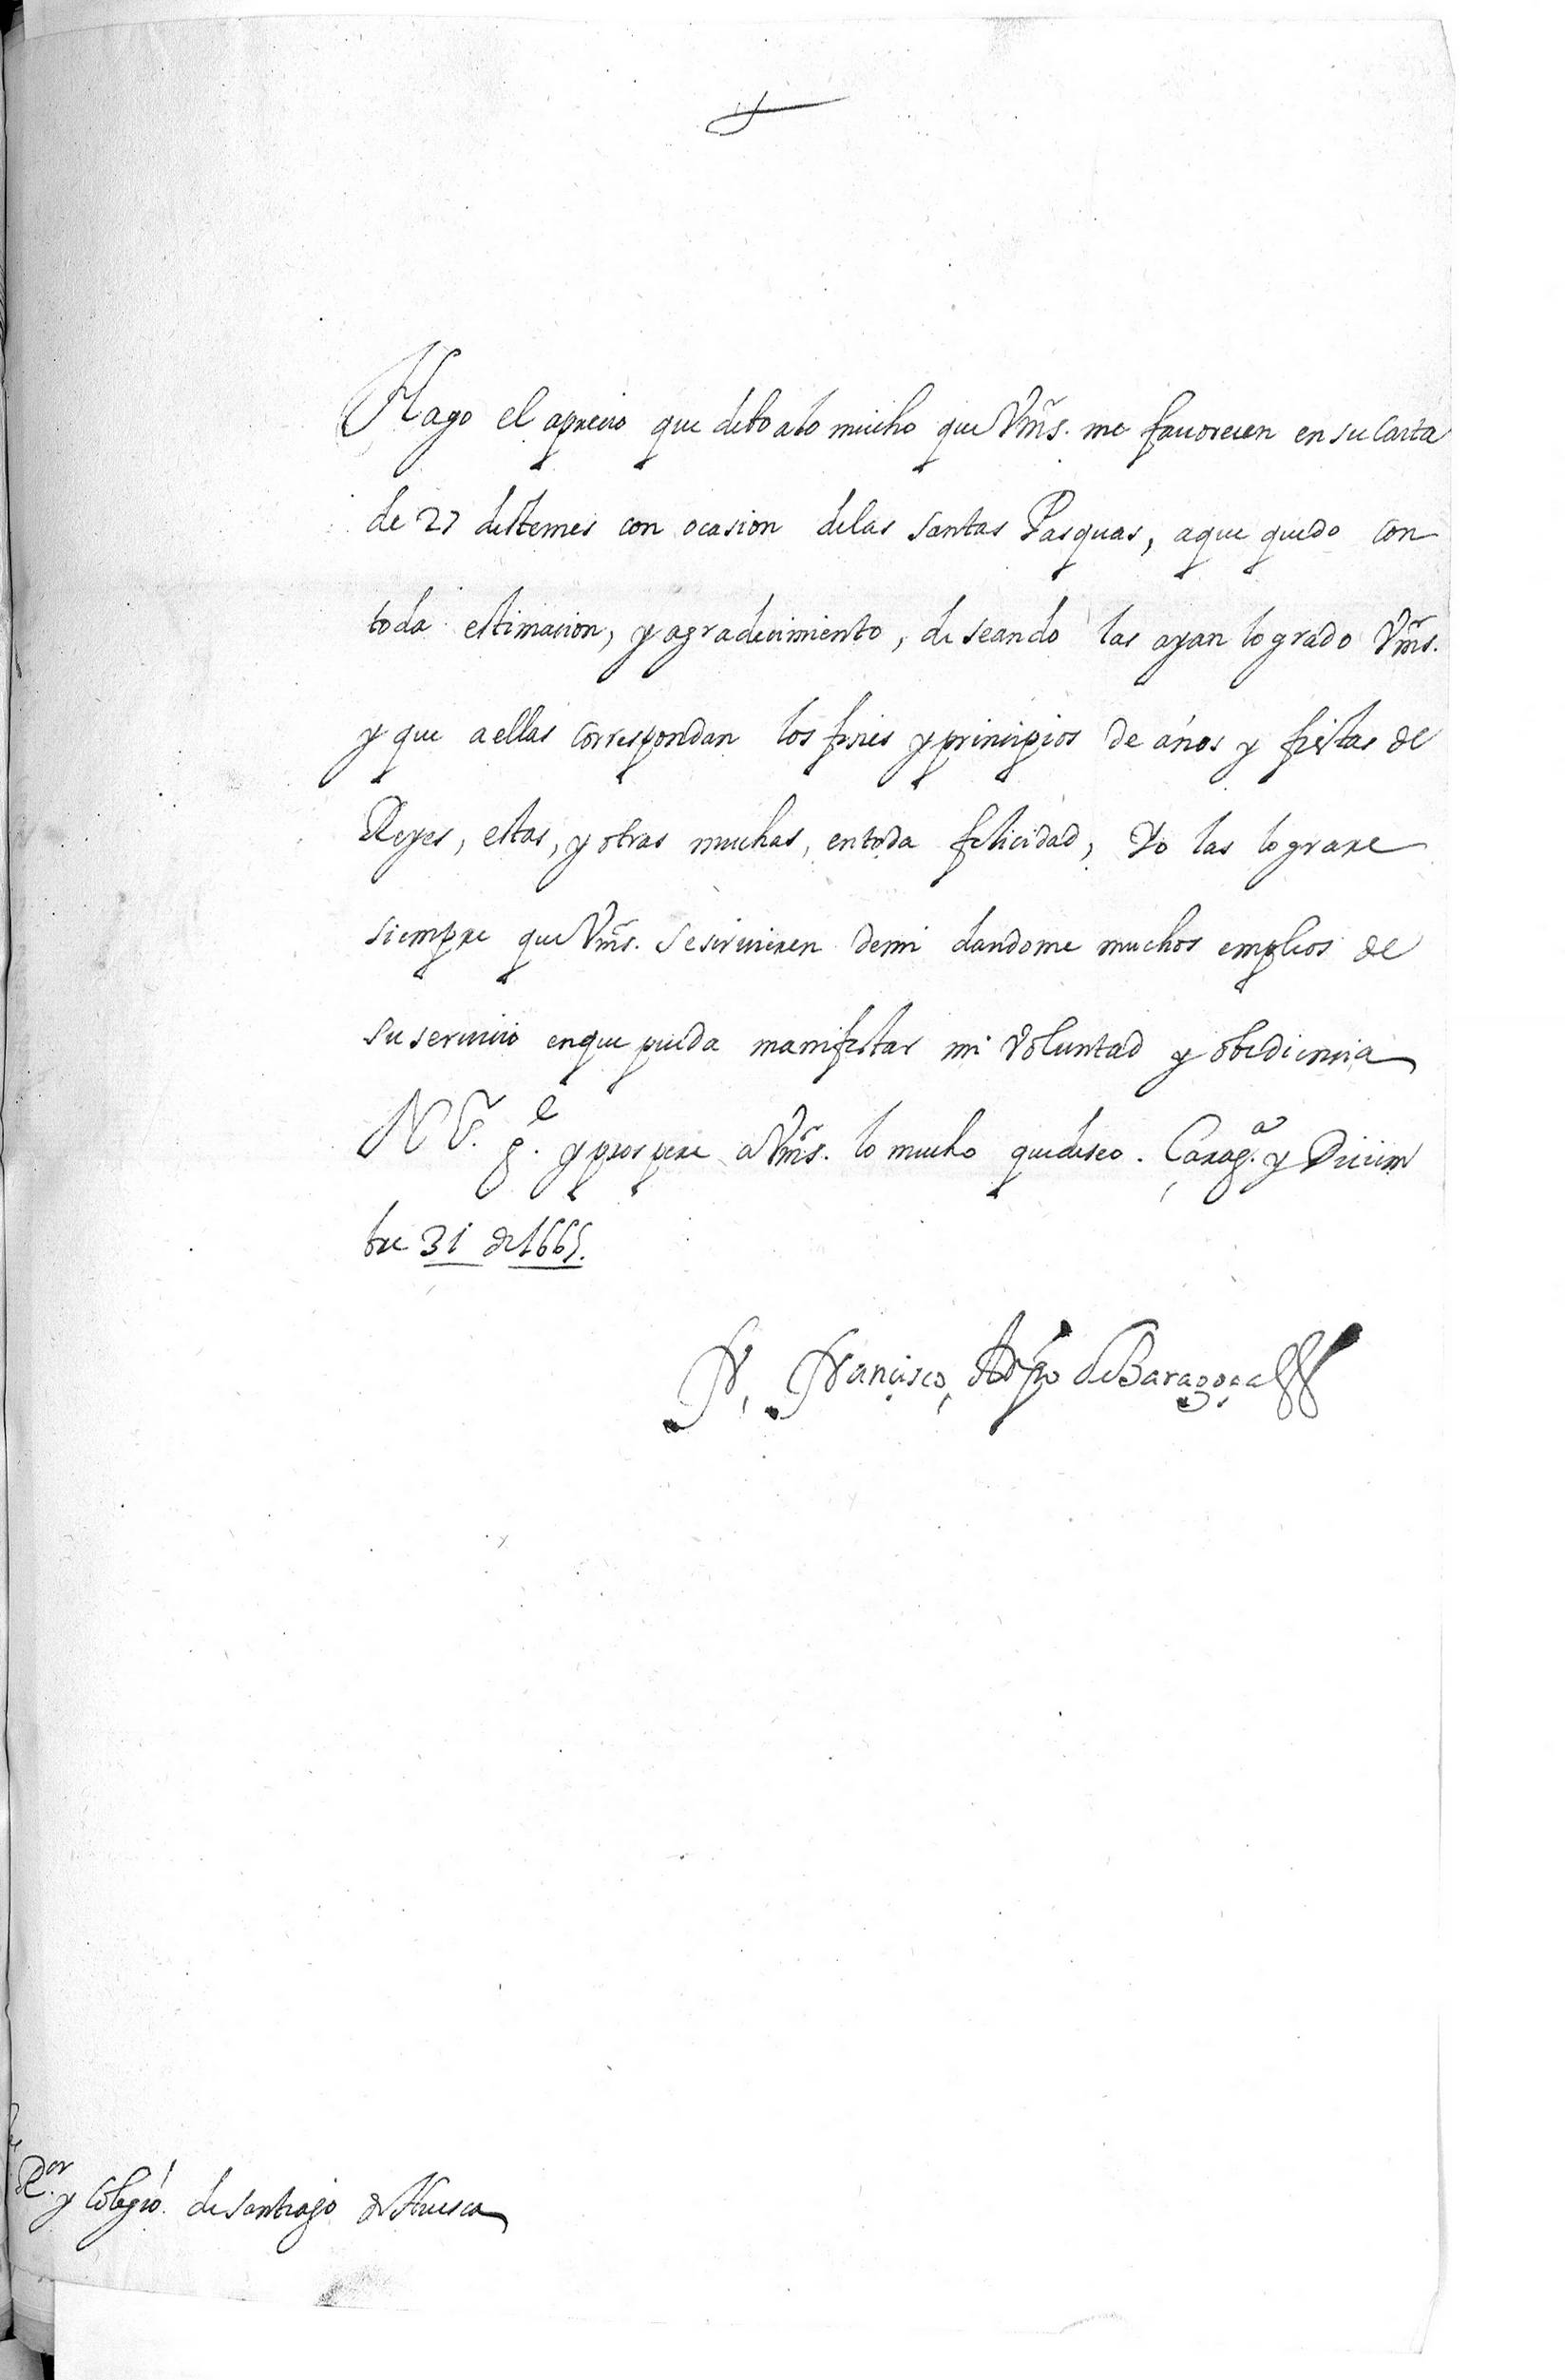 Hago el aprecio que debo a lo mucho que Vms. me fauorecen en su Carta
de 27 deste mes con ocasion de las santas Pasquas, a que quedo con
toda estimacion, y agradecimiento, deseando las ayan logrado Vms.
y que a ellas correspondan los fines y principios de años y fiestas de
Reyes, estas, y otras muchas, en toda felicidad, Yo las lograre
siempre que Vms. se siruieren de mi dandome muchos empleos de
su seruicio en que pueda manifestar mi Voluntad y obediencia
N S. g.e y prospere a Vms. lo mucho que deseo. Çarag.a y Diciem
bre 31 de 1665.
Fr. Francisco de Baragona
R.or y Colegio de Santiago de Huesca